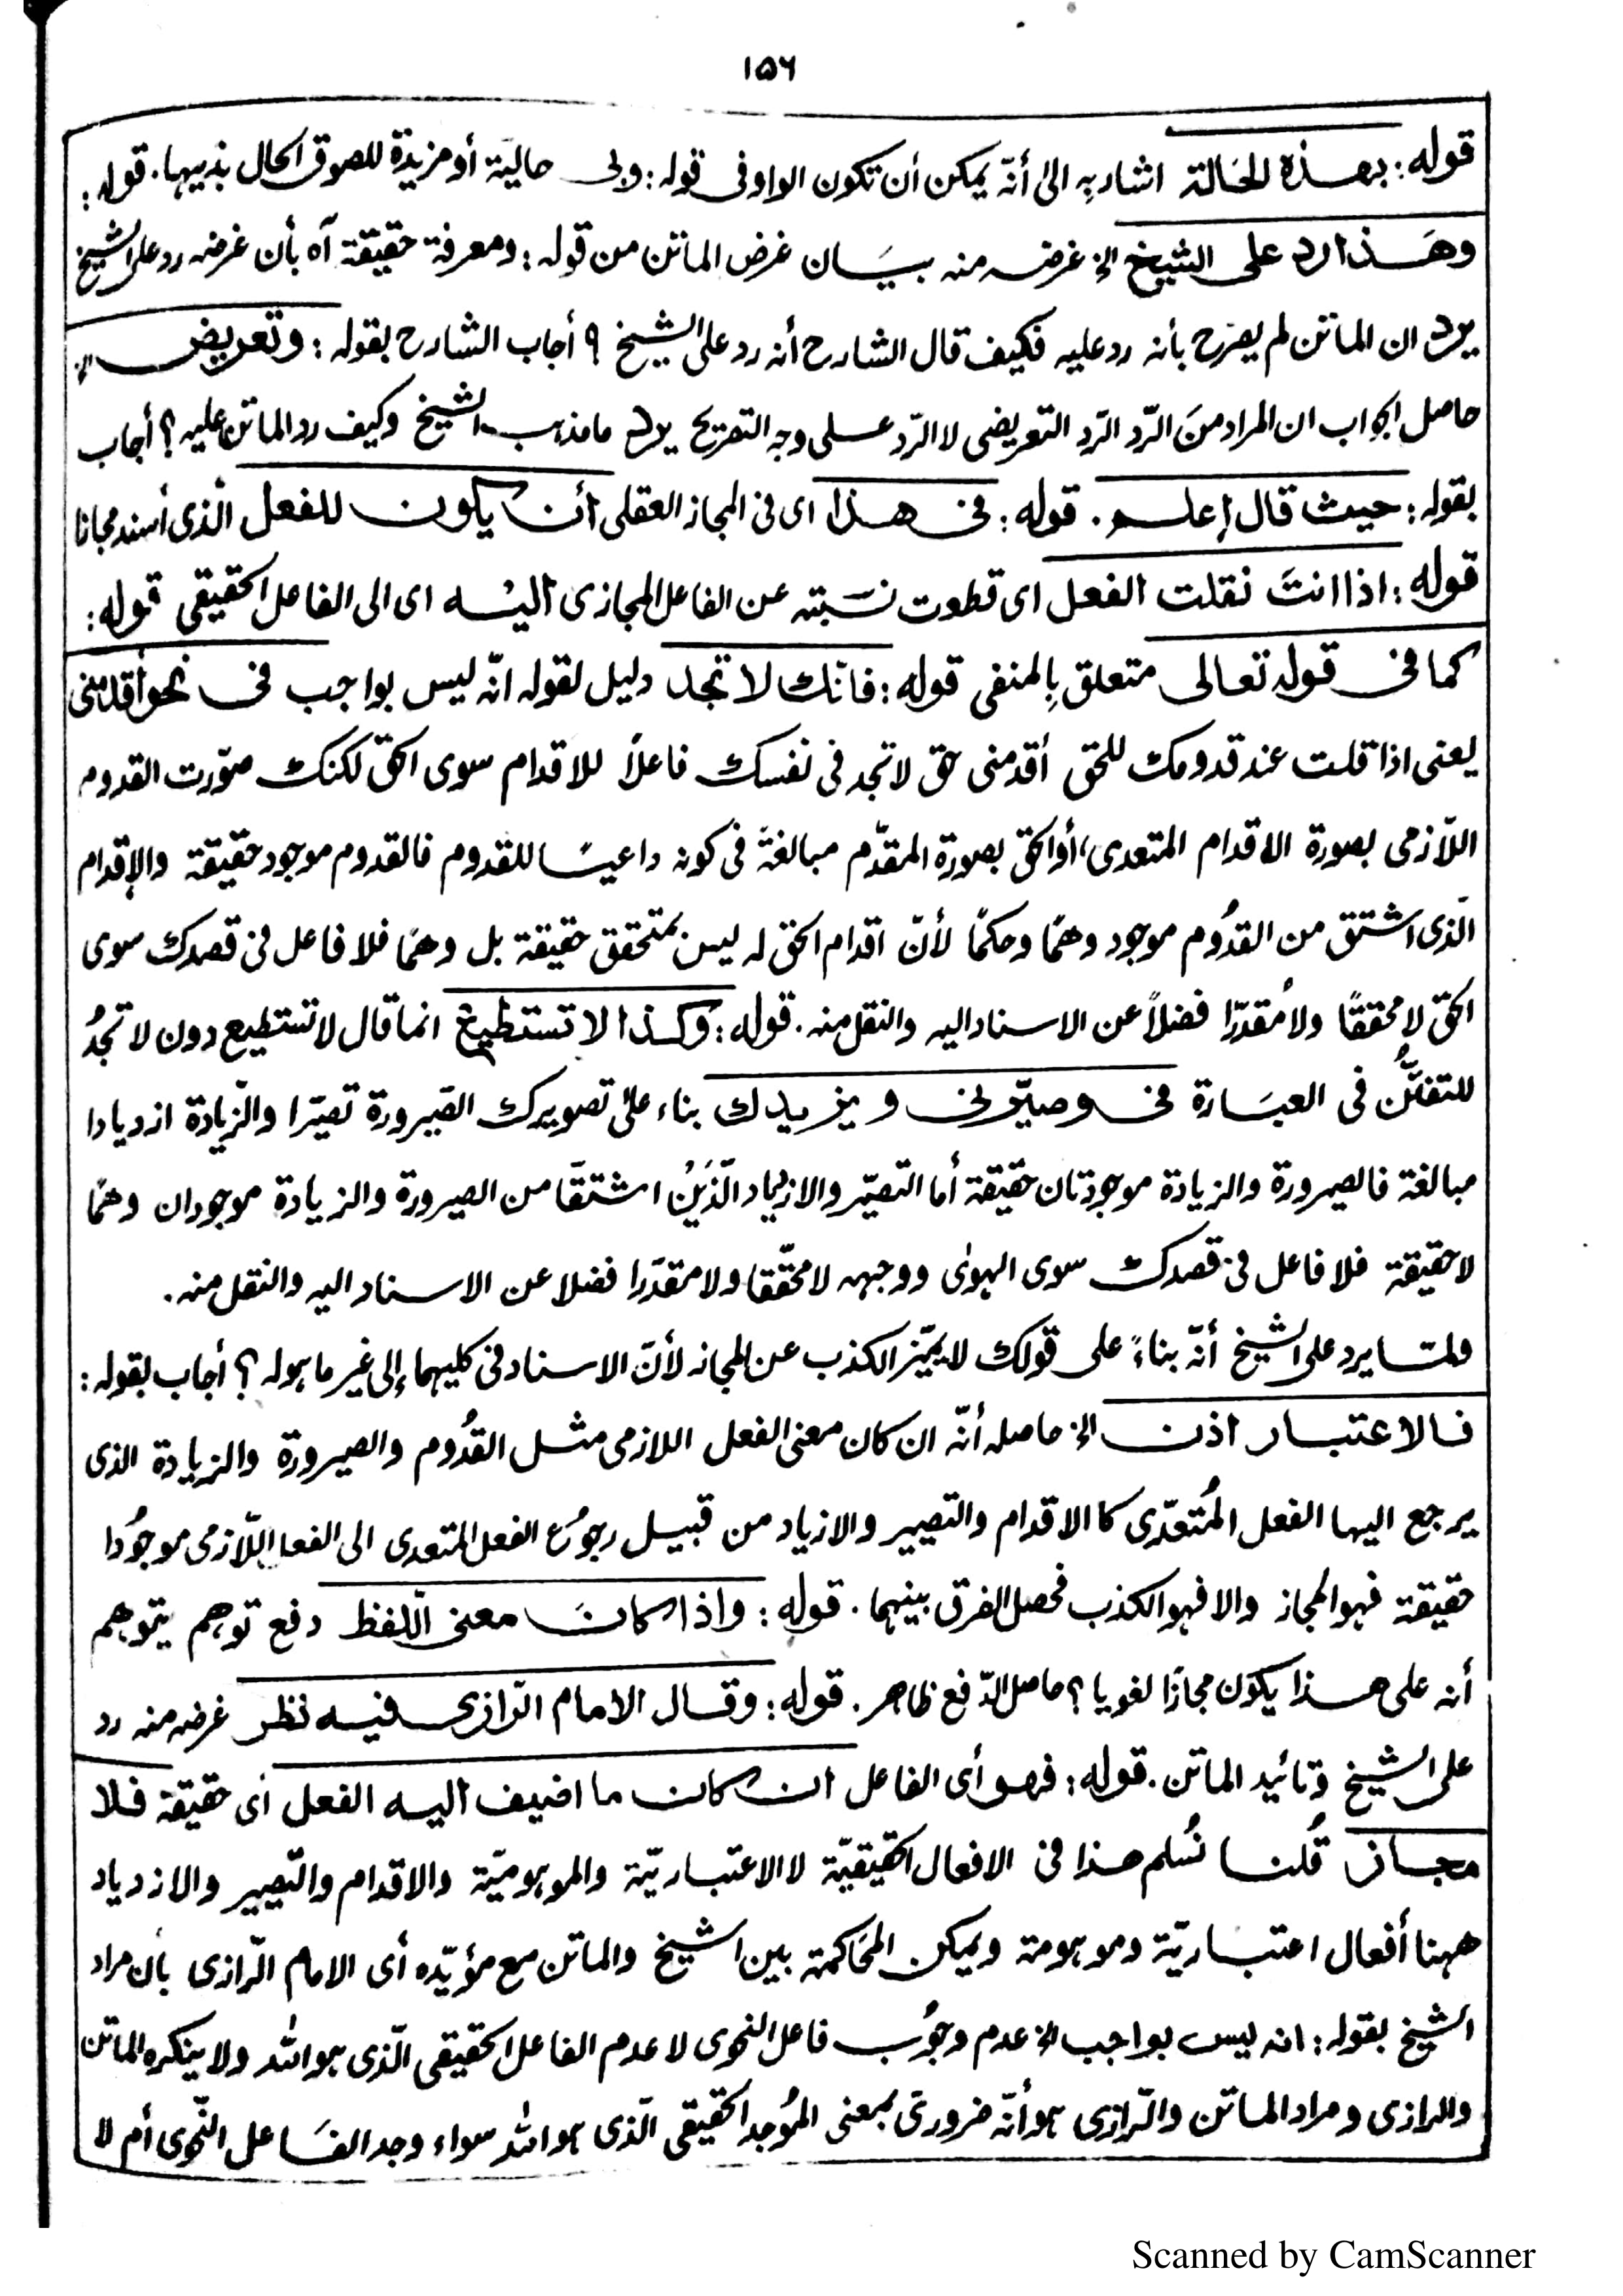 ١٥٦
قوله: بهذه الحالة اشار به الى أنّه يمكن أن تكون الواو فى قوله: وبى حالية أو مزيدة للصوق الحال بذيها. قوله:
وهَذا رد على الشيخ الخ غرضه منه بيَان غرض الماتن من قوله: ومعرفة حقيقة آه بأن غرضه رد على الشيخ
يرد ان الماتن لم يصرّح بأنه رد عليه فكيف قال الشارح أنه رد على الشيخ ؟ أجاب الشارح بقوله: وتعريض الخ
حاصل الجواب ان المراد منَ الرّد الرّد التعريضى لا الرّد على وجه التصريح يرد ما مذهب الشيخ وكيف رد الماتن عليه؟ أجاب
بقوله: حيث قال إعلم. قوله: فى هذا اى فى المجاز العقلى أن يكون للفعل الّذى أسند مجازا
قوله: اذا انتَ نقلت الفعل اى قطعت نسَبته عن الفاعل المجازى اليْه اى الى الفاعل الحقيقى قوله:
كما فى قوله تعالى متعلق بِالمنفى قوله: فانّك لا تجد دليل لقوله انّه ليس بواجب فى نحو أقدمنى
يعنى اذا قلت عند قدومك للحق أقدمنى حق لا تجد فى نفسك فاعلاً للاقدام سوى الحق لكنك صوّرت القدوم
اللّازمى بصورة الاقدام المتعدى، أو الحق بصورة المقدّم مبالغةً فى كونه داعيًا للقدوم فالقدوم موجود حقيقة والإقدام
الّذى اشتق من القدُوم موجود وهمًا وحكمًا لأنّ اقدام الحق له ليس بمتحقق حقيقة بل وهمًا فلا فاعل فى قصدك سوى
الحق لا محققًا ولا مُقدرًا فضلاً عن الاسناد اليه والنقل منه. قوله: وكذا لا تستطيع انما قال لا تستطيع دون لا تجدُ
للتفنُّن فى العبَارة فى وصيّرنى ويزيدك بناء على تصويرك الصّيرورة تصيّرا والزّيادة ازديادا
مبالغة فالصيرورة والزيادة موجودتان حقيقة أما التصيّر والازدياد الّذَيْن اشتقّا من الصيرورة والزيادة موجودان وهمًا
لا حقيقة فلا فاعل فى قصدك سوى الهوٰى ووجهه لا محقّقا ولا مقدَرا فضلا عن الاسناد اليه والنقل منه.
ولمّا يرد على الشيخ أنّه بناءً على قولك لا يميّز الكذب عن المجاز لأنّ الاسناد فى كليهما إلى غير ما هو له؟ أجاب بقوله:
فالاعتبار اذن الخ حاصله أنّه ان كان معنى الفعل اللازمى مثل القدُوم والصيرورة والزيادة الذى
يرجع اليها الفعل المُتعدّى كالاقدام والتصيير والازياد من قبيل رجوُع الفعل المتعدى الى الفعل اللّازمى موجوُدا
حقيقة فهو المجاز والا فهو الكذب فحصل الفرق بينهما. قوله: واذا كانَ معنى اللّفظ دفع توهم يتوهم
أنه على هذا يكون مجازًا لغويا؟ حاصل الدّفع ظاهر. قوله: وقال الامام الرّازى فيه نظر غرضه منه رد
على الشيخ وتائيد الماتن. قوله: فهو أى الفاعل ان كان ما اضيف اليه الفعل أى حقيقة فلا
مجاز قُلنا نُسلم هذا فى الافعال الحقيقيّة لا الاعتباريّة والموهوميّة والاقدام والتّصيير والازدياد
ههنا أفعال اعتبَاريّة وموهومة ويمكن المحَاكمة بين الشيخ والماتن مع مؤيّده أى الامام الرّازى بأن مراد
الشيخ بقوله: انه ليس بواجب الخ عدم وجوُب فاعل النحوى لا عدم الفاعل الحقيقى الّذى هو الله ولا ينكره الماتن
والرازى ومراد الماتن والرّازى هو أنّه ضرورىّ بمعنى المُوجد الحقيقى الّذى هو الله سواء وجد الفَاعل النّحوى أم لا
Scanned by CamScanner